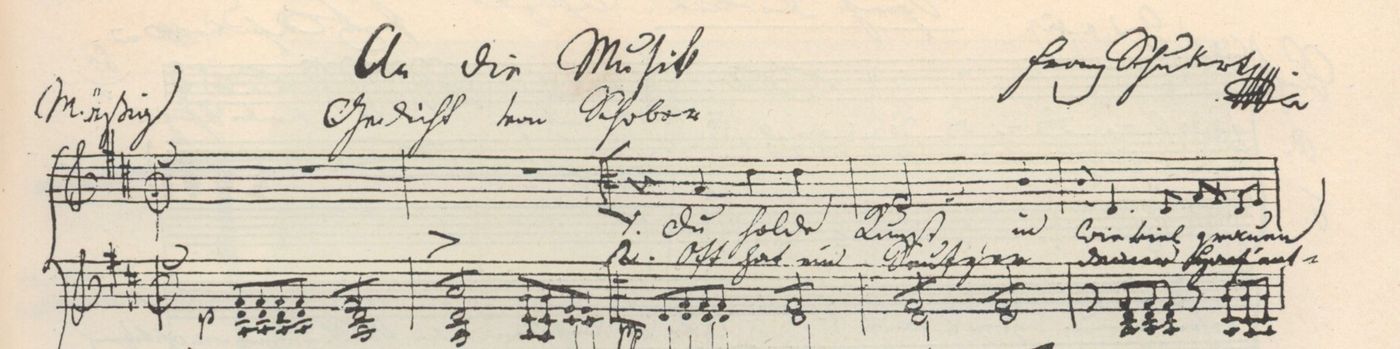 An die Musik
Franz Schubert
(Mäßig)
Gedicht von Schober
1. Du holde Kunst in wieviel grauen
2. Oft hat ein Seufzer deiner Harf ent-
p
pp